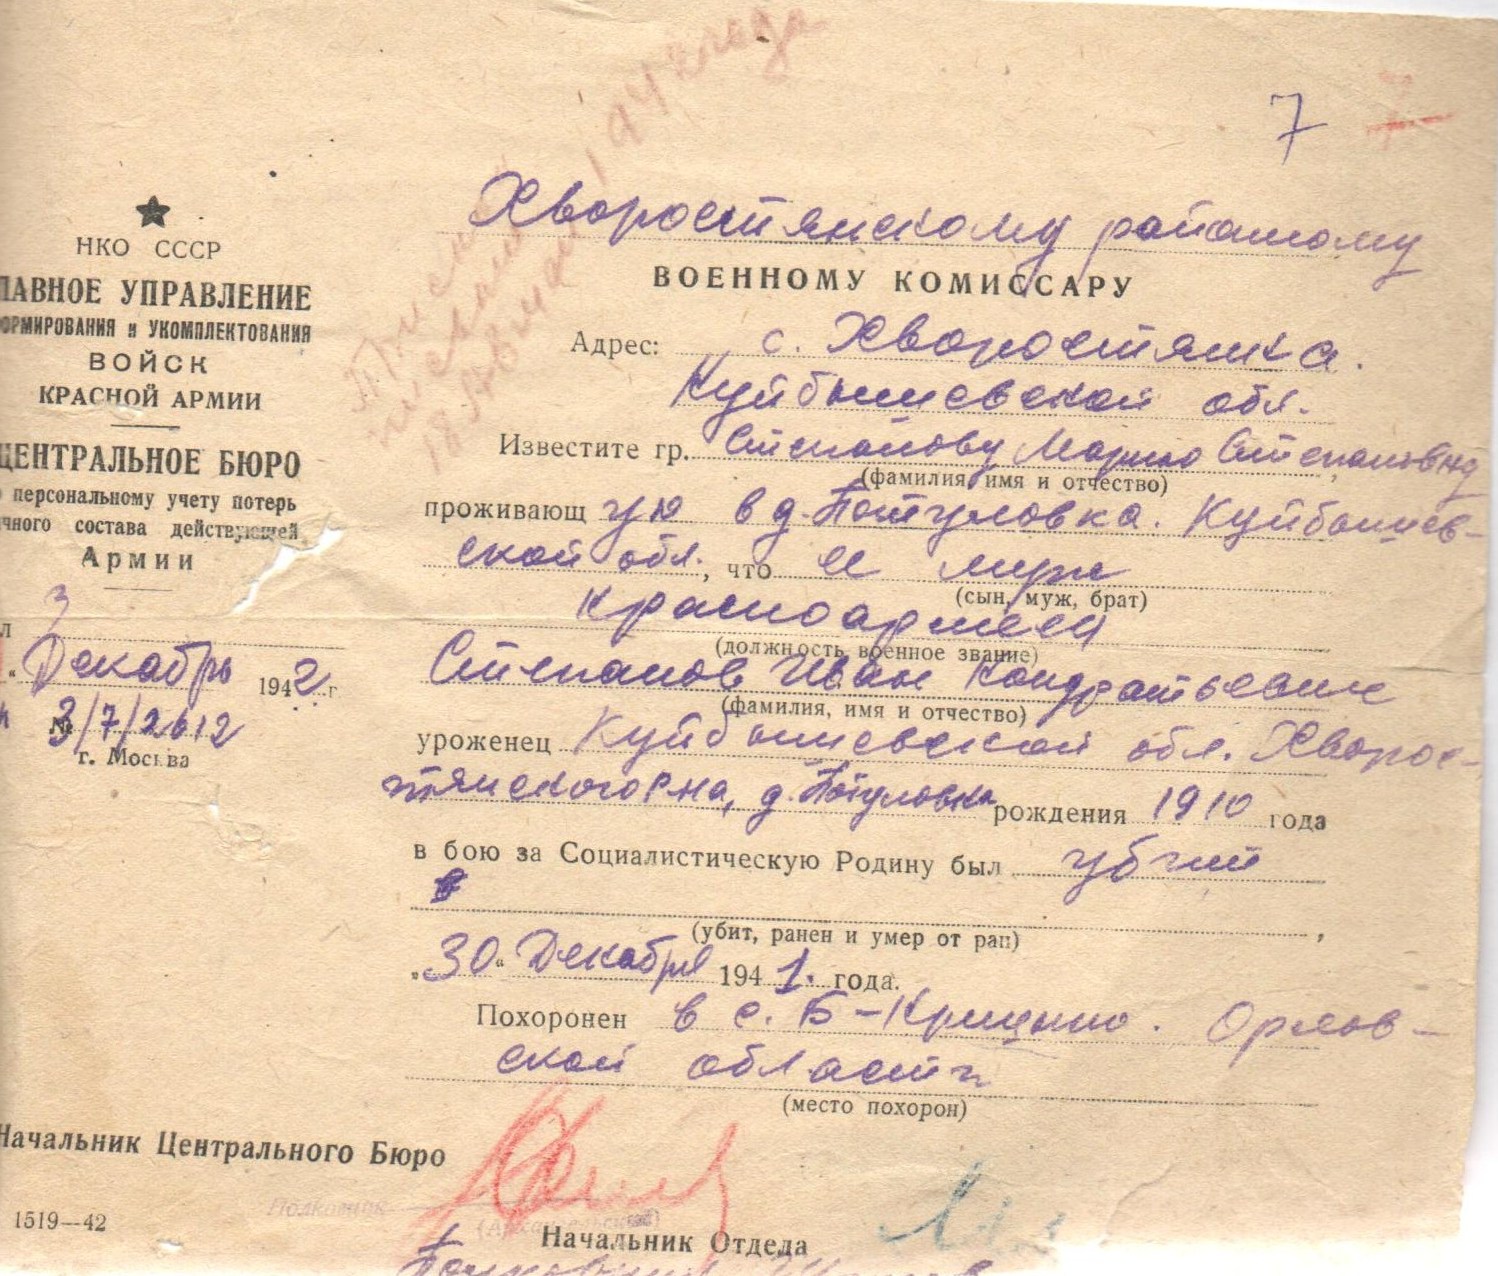 7
НКО СССР
ЛАВНОЕ УПРАВЛЕНИЕ
ОРМИРОВАНИЯ и УКОМПЛЕКТОВАНИЯ
ВОЙСК
КРАСНОЙ АРМИИ
ЦЕНТРАЛЬНОЕ БЮРО
о персональному учету потерь
ичного состава действующей
Армии
3
л
" Декабрь 1942 г
№ 3/7/2612
г. Москва
Хворостянскому районому
ВОЕННОМУ КОМИССАРУ
Адрес: с. Хворостянка.
Куйбышевской обл.
Известите гр. Степанову Марию Степановну
(фамилия, имя и отчество)
проживающ ую в д. Потуловка. Куйбышев-
ской обл., что ее муж
(сын, муж, брат)
Красноармеец
(должность военное звание)
Степанов Иван Кондратьевич
(фамилия, имя и отчество)
уроженец Куйбышевской обл. Хворос-
тянского р-на, д. Потуловка рождения 1910 года
в бою за Социалистическую Родину был убит
(убит, ранен и умер от ран)
"30" Декабря 1941. года.
Похоронен в с. Б-Крицыно. Орлов-
ской области
(место похорон)
Начальник Центрального Бюро
Полковник
(Архангельский)
1519—42
Начальник Отдела